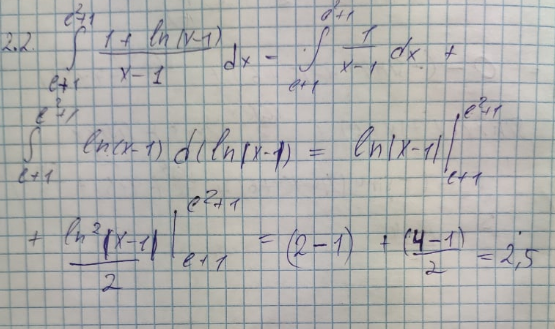 2.2 ∫_{e+1}^{e²+1} (1 + ln(x-1))/(x-1) dx = ∫_{e+1}^{e²+1} 1/(x-1) dx +
∫_{e+1}^{e²+1} ln(x-1) d(ln(x-1)) = ln|x-1| |_{e+1}^{e²+1}
+ ln²|x-1|/2 |_{e+1}^{e²+1} = (2-1) + (4-1)/2 = 2,5